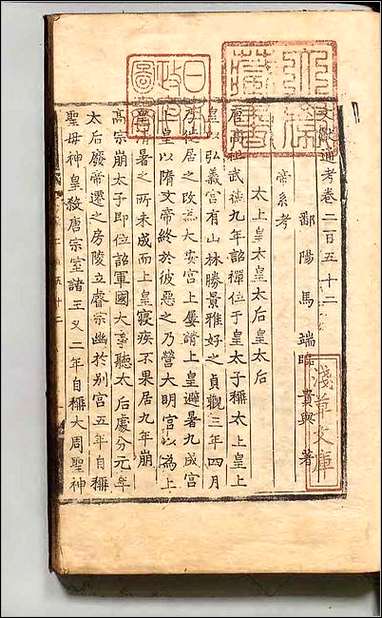 文獻通考卷二百五十二
鄱陽馬端臨貴與著
帝系考
太上皇太皇太后皇太后
唐高祖武德九年詔禪位于皇太子稱太上皇上
皇以弘義宮有山林勝景雅好之貞觀三年四月
徙居之改為大安宮上屢請上皇避暑九成宮
上皇以隋文帝終於彼惡之乃營大明宮以為上
皇清暑之所未成而上皇寢疾不果居九年崩
高宗崩太子即位詔軍國大事聽太后處分元年
太后廢帝遷之房陵立睿宗幽於別宮五年自稱
聖母神皇殺唐宗室諸王又二年自稱大周聖神
日本政府圖書
淺草文庫